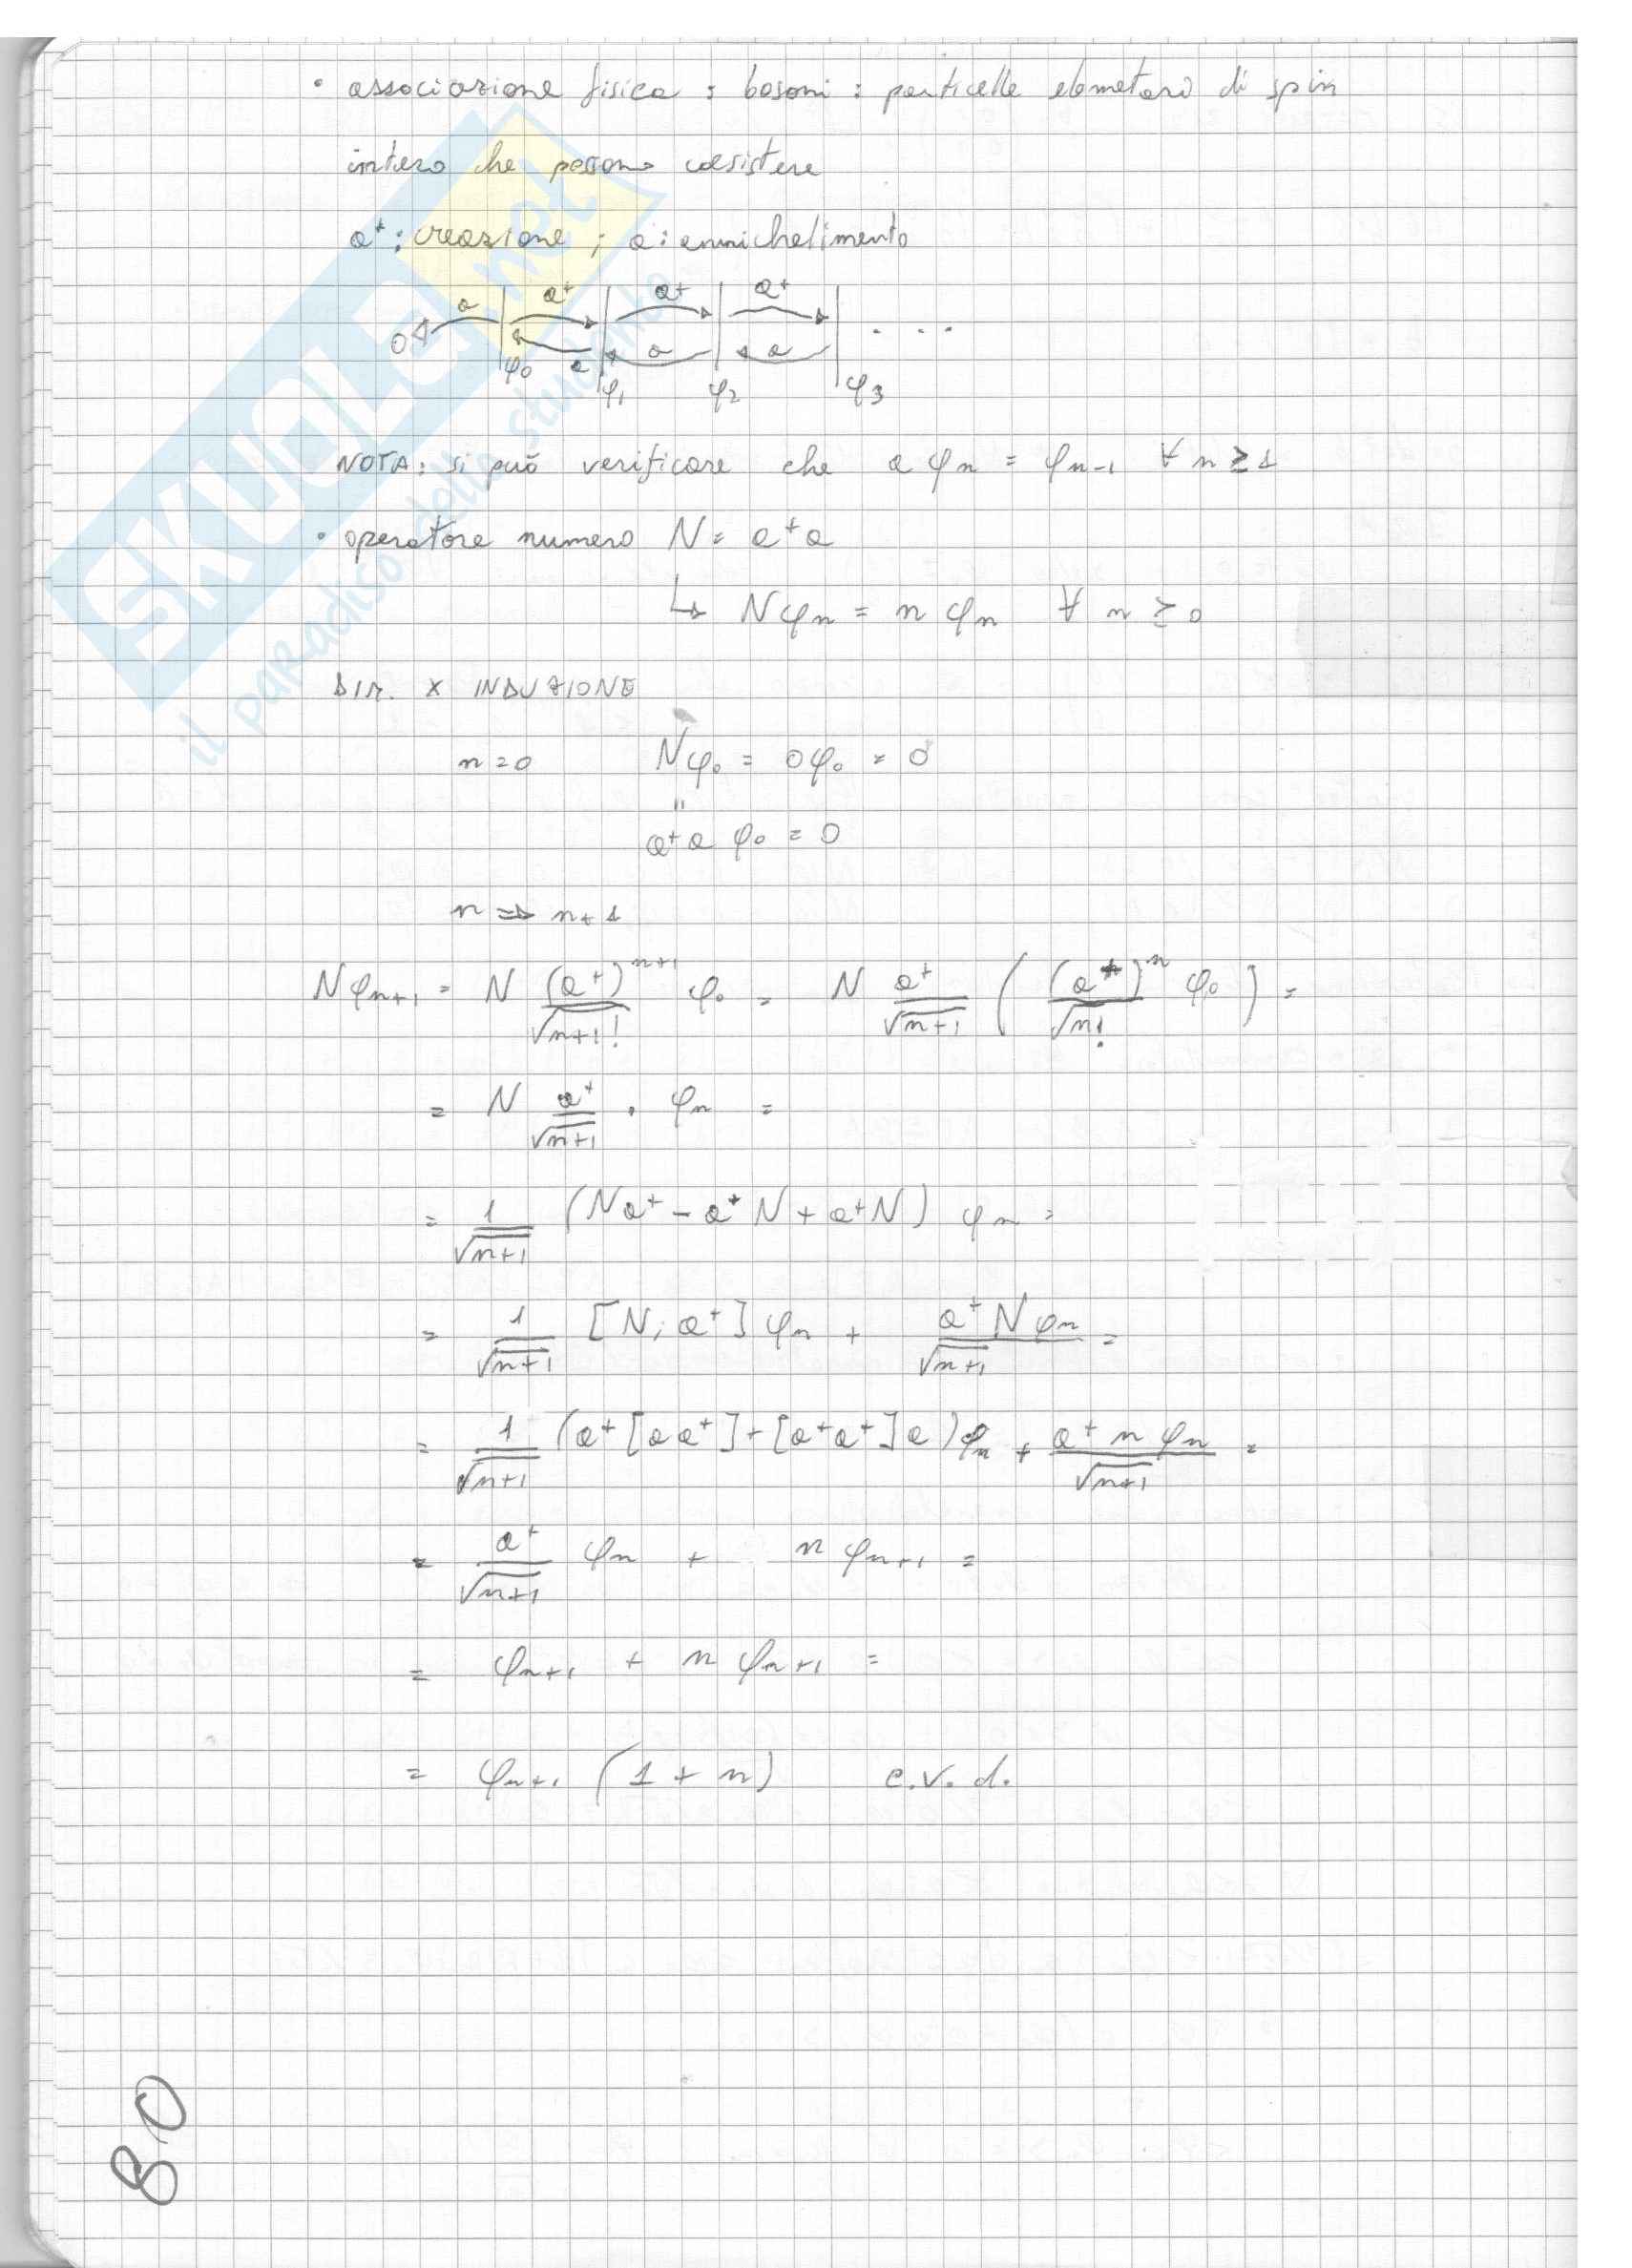 • associazione fisica : bosoni : particelle elemetari di spin
intero che possono coesistere
a⁺ : creazione ; a : annichelimento
a a⁺ a⁺ a⁺
0 φ₀ a φ₁ a φ₂ a φ₃ . . . .
NOTA: si può verificare che a φn = φn-1 ∀ n ≥ 1
• operatore numero N = a⁺a
↳ Nφn = n φn ∀ n ≥ 0
DIM. X INDUZIONE
n = 0 Nφ₀ = 0φ₀ = 0
"
a⁺a φ₀ = 0
n ⇒ n+1
Nφn+1 = N (a⁺)ⁿ⁺¹/√n+1! φ₀ = N a⁺/√n+1 ( (a⁺)ⁿ/√n! φ₀ ) =
= N a⁺/√n+1 · φn =
= 1/√n+1 (Na⁺ - a⁺N + a⁺N) φn =
= 1/√n+1 [N, a⁺] φn + a⁺Nφn/√n+1 =
= 1/√n+1 (a⁺[a a⁺] + [a⁺a⁺] a) φn + a⁺ n φn/√n+1 =
= a⁺/√n+1 φn + n φn+1 =
= φn+1 + n φn+1 =
= φn+1 (1 + n) c.v.d.
80
SKUOLA.net
il paradiso dello studente